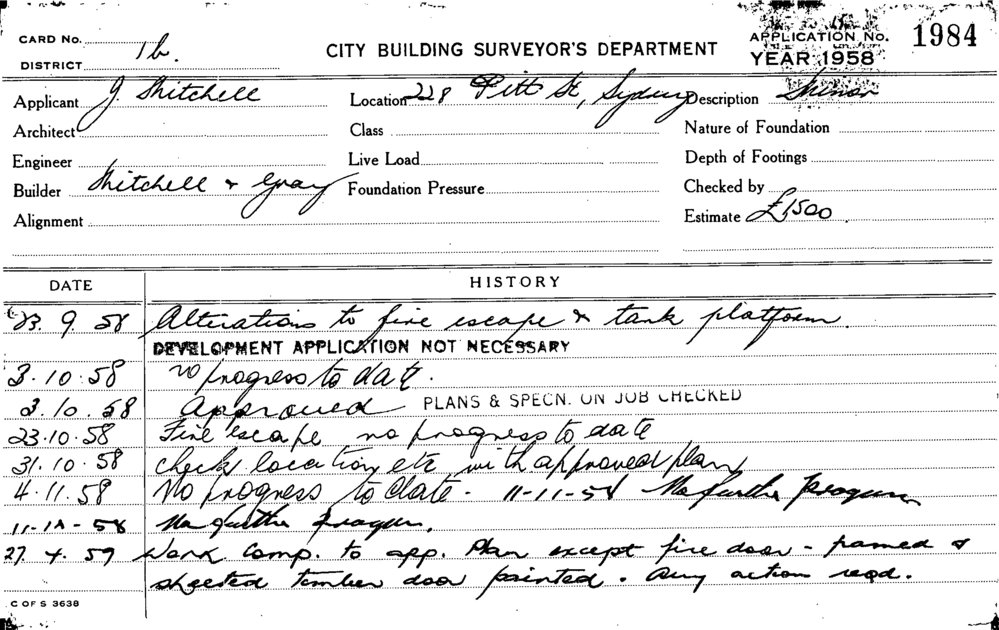 CARD No.
DISTRICT 1b.
CITY BUILDING SURVEYOR'S DEPARTMENT
APPLICATION No. 1984
YEAR 1958
Applicant J. Mitchell
Location 228 Pitt St, Sydney
Description Minor
Architect
Class
Nature of Foundation
Engineer
Live Load
Depth of Footings
Builder Mitchell & Gray
Foundation Pressure
Checked by
Alignment
Estimate £1500
DATE HISTORY
23. 9. 58 Alterations to fire escape & tank platform.
DEVELOPMENT APPLICATION NOT NECESSARY
3. 10. 58 no progress to date.
3. 10. 58 Approved PLANS & SPECN. ON JOB CHECKED
23. 10. 58 Fire escape no progress to date
31. 10. 58 check location etc with approved plan
4. 11. 58 No progress to date. 11-11-58 No further progress
No further progress.
27. 4. 59 Work Comp. to app. Plan except fire door - framed &
sheeted timber door painted. Any action reqd.
C OF S 3638